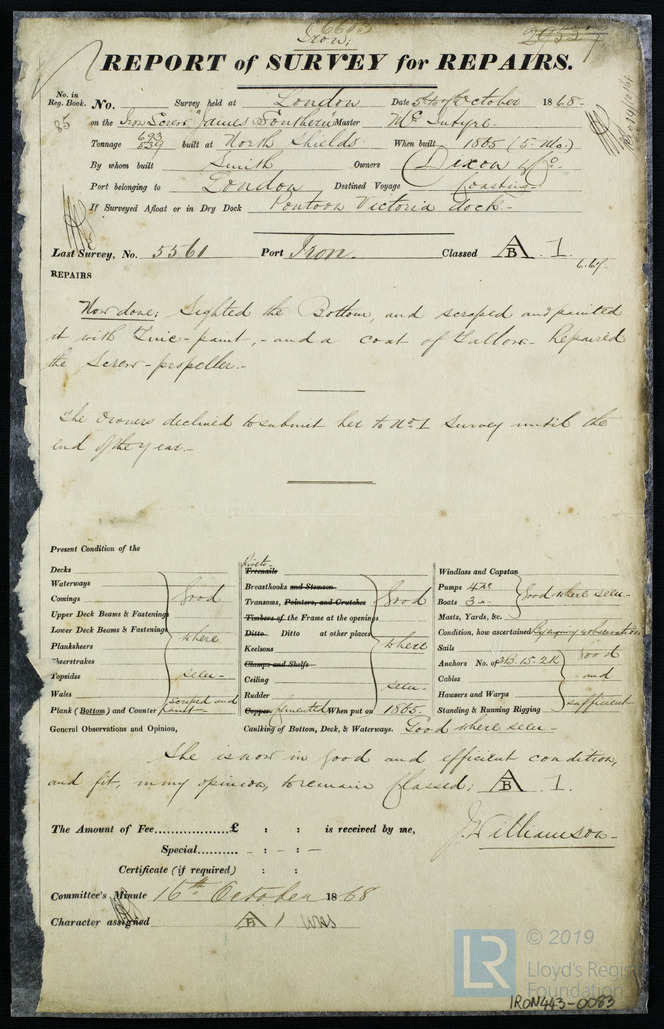 Iron.
REPORT of SURVEY for REPAIRS.
No. in Reg. Book. No. Survey held at London Date October 1868.
85 on the Iron Screw "James Southern" Master Mc Intyre.
Tonnage 693 539 built at North Shields. When built 1865 (5 Mo.)
By whom built Smith Owners Dixon & Co.
Port belonging to London Destined Voyage Coasting.
If Surveyed Afloat or in Dry Dock Pontoon Victoria Dock.-
Last Survey, No. 5561 Port Iron. Classed A B 1 6.67.
REPAIRS
Now done: Sighted the Bottom, and scraped and painted
it with Zinc-paint,- and a coat of Tallow.- Repaired
the Screw-propeller.-
The Owners declined to submit her to No. 1 Survey until the
end of the Year.-
Present Condition of the
Decks
Waterways
Comings
Upper Deck Beams & Fastenings
Lower Deck Beams & Fastenings
Planksheers
Sheerstrakes
Topsides
Wales
Good where seen-
Plank (Bottom) and Counter scraped and paint-
Rivets
Treenails
Breasthooks and Stemson
Transoms, Pointers, and Crutches
Timbers of the Frame at the openings
Ditto Ditto at other places
Keelsons
Clamps and Shelfs
Ceiling
Rudder
Good where seen-
Copper cemented When put on 1865.
Windlass and Capstan
Pumps
Boats
Masts, Yards, &c.
Good where seen-
Condition, how ascertained By observation
Sails
Anchors No. of 3B. 1S. 2K
Cables
Hawsers and Warps
Standing & Running Rigging
Good and sufficient
General Observations and Opinion, Caulking of Bottom, Deck, & Waterways. Good where seen-
She is now in good and efficient condition,
and fit, in my opinion, to remain Classed; A B 1.
The Amount of Fee £ : : is received by me,
Special - : - : -
J. Williamson-
Certificate (if required) : :
Committee's Minute 16th October 1868
Character assigned A B 1
LR © 2019
Lloyd's Register
Foundation
IRON443-0083